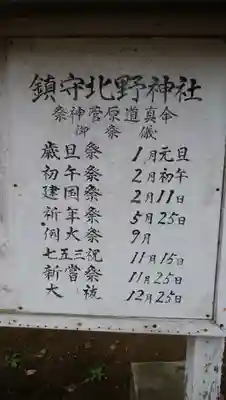 鎮守北野神社
祭神菅原道真命
御祭儀
歳旦祭 1月元旦
初午祭 2月初午
建国祭 2月11日
祈年祭 5月25日
例大祭 9月
七五三祝 11月15日
新嘗祭 11月25日
大祓 12月25日